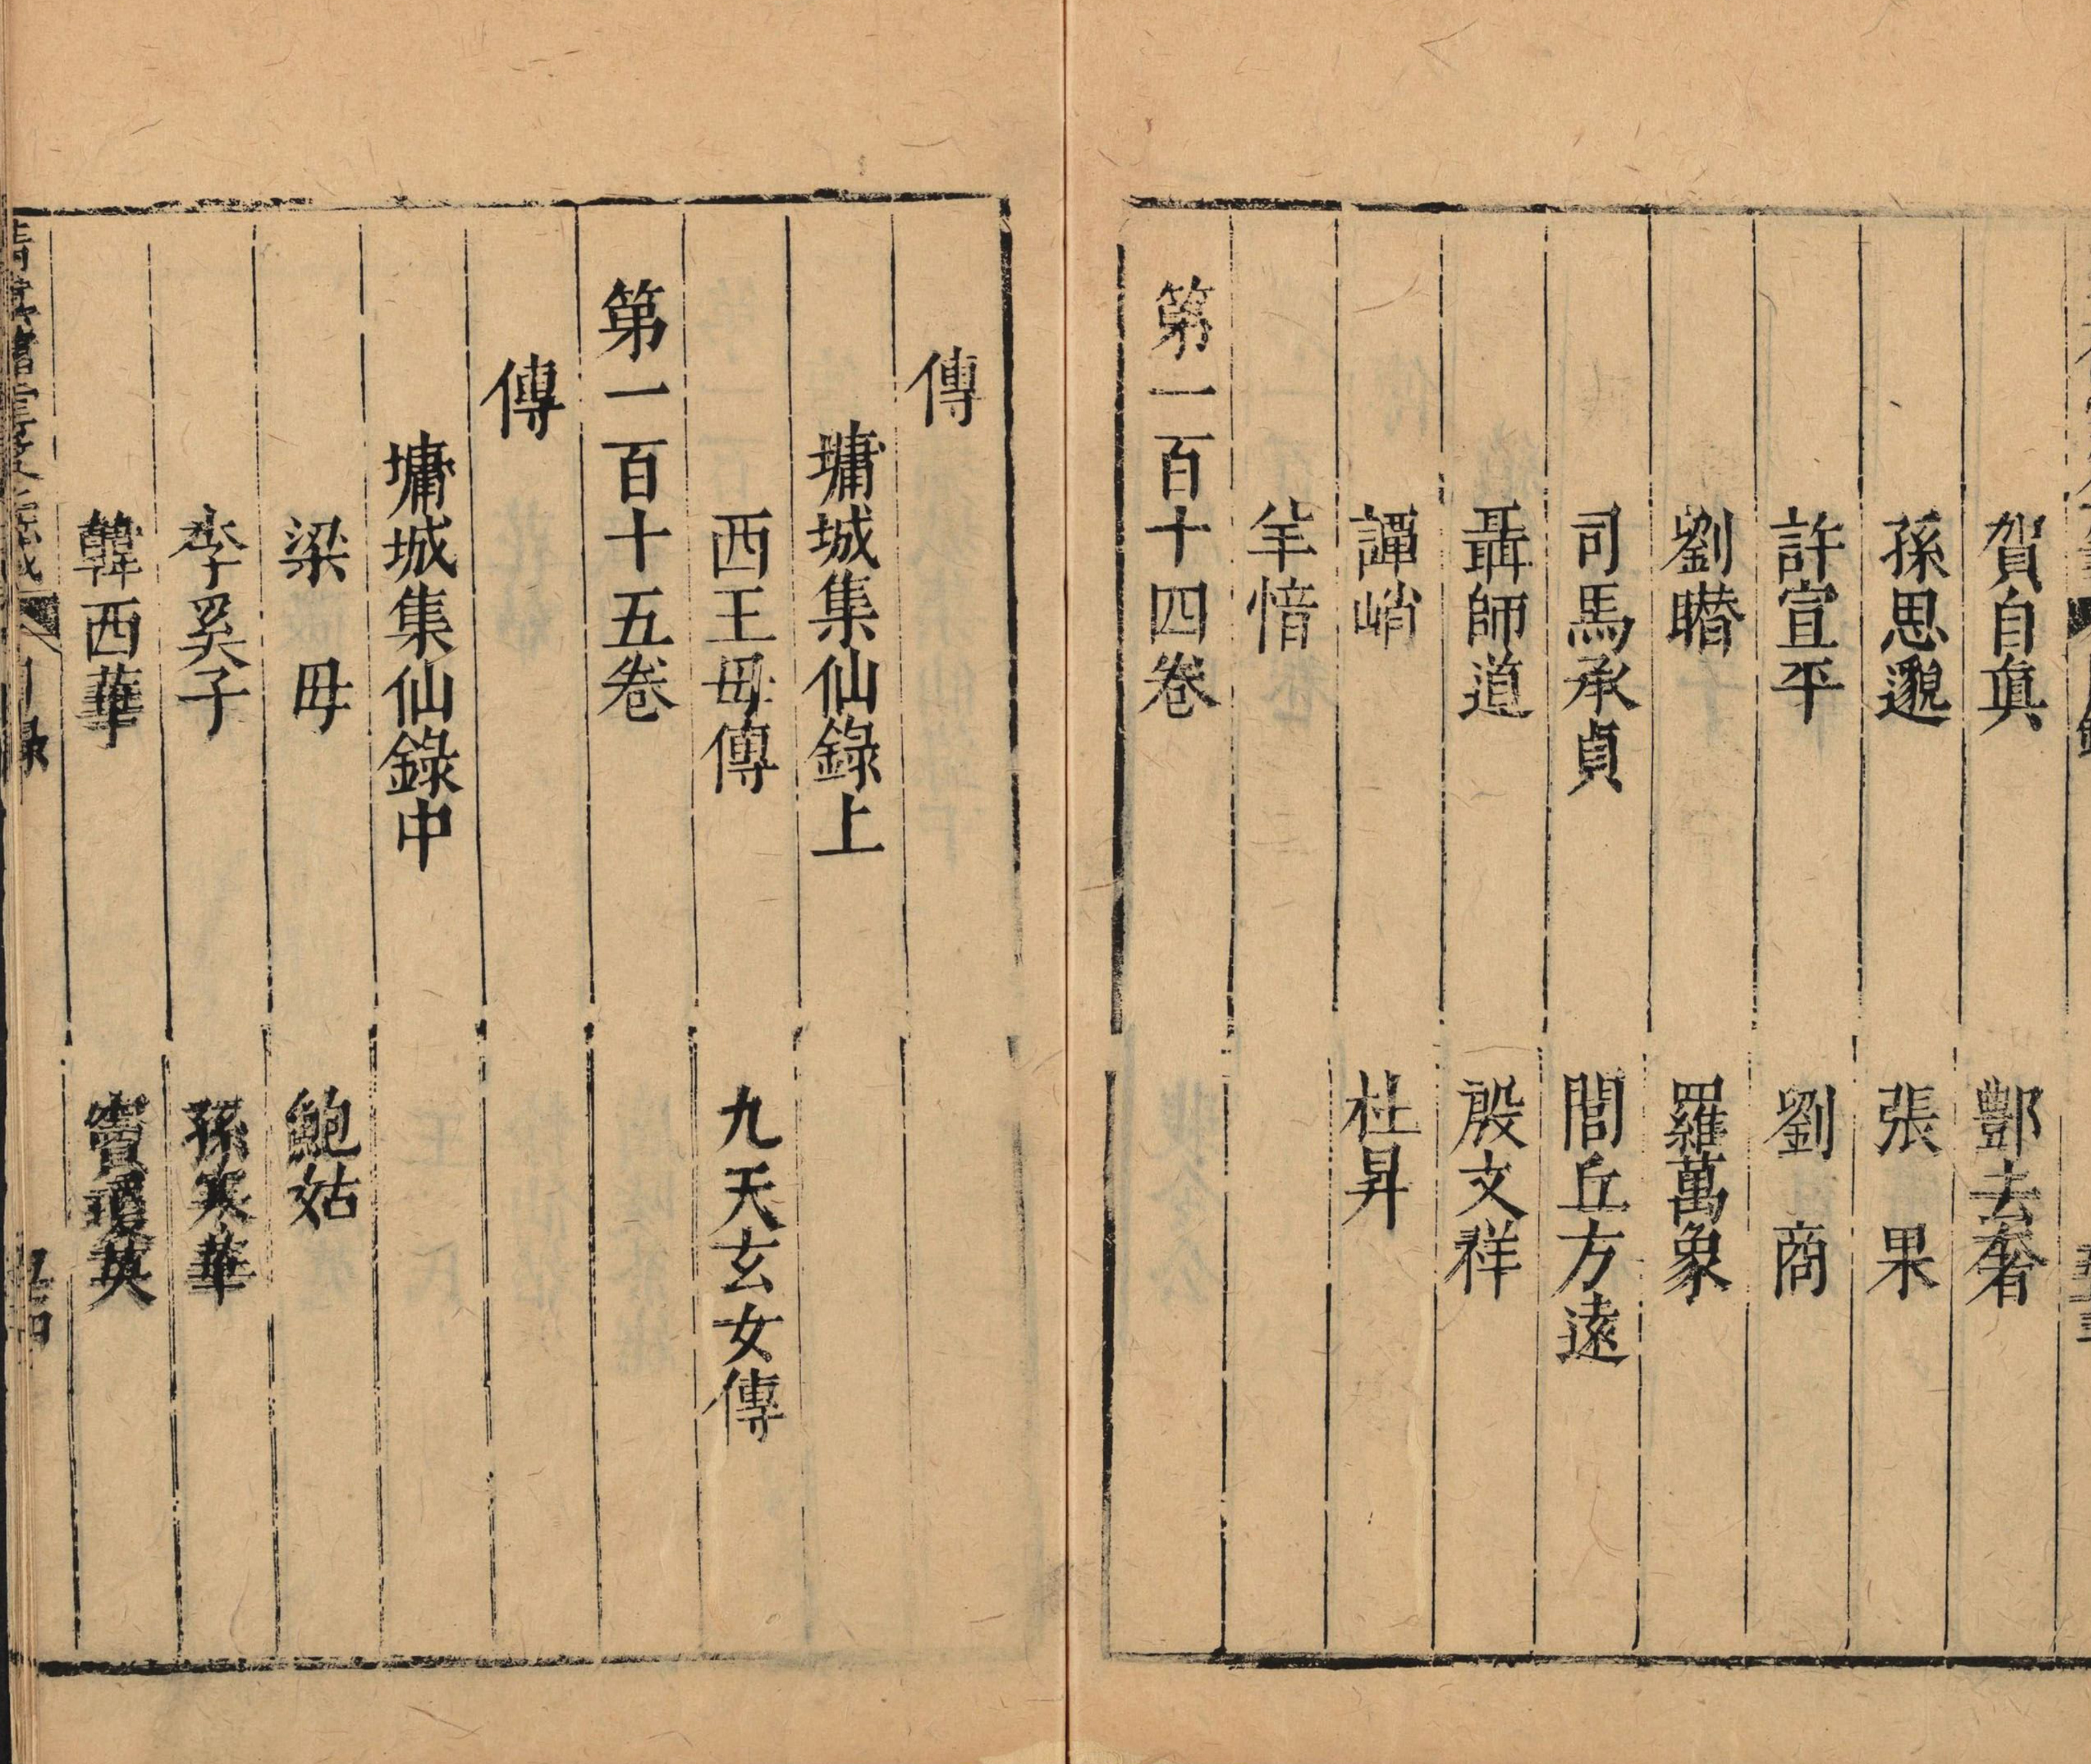 賀自真　酆去奢
孫思邈　張果
許宣平　劉商
劉瞽　羅萬象
司馬承貞　閭丘方遠
聶師道　殷文祥
譚峭　杜昇
羊愔
第一百十四卷
傳
墉城集仙錄上
西王毋傳　九天玄女傳
第一百十五卷
傳
墉城集仙錄中
梁毋　鮑姑
李奚子　孫寒華
韓西華　竇瓊英